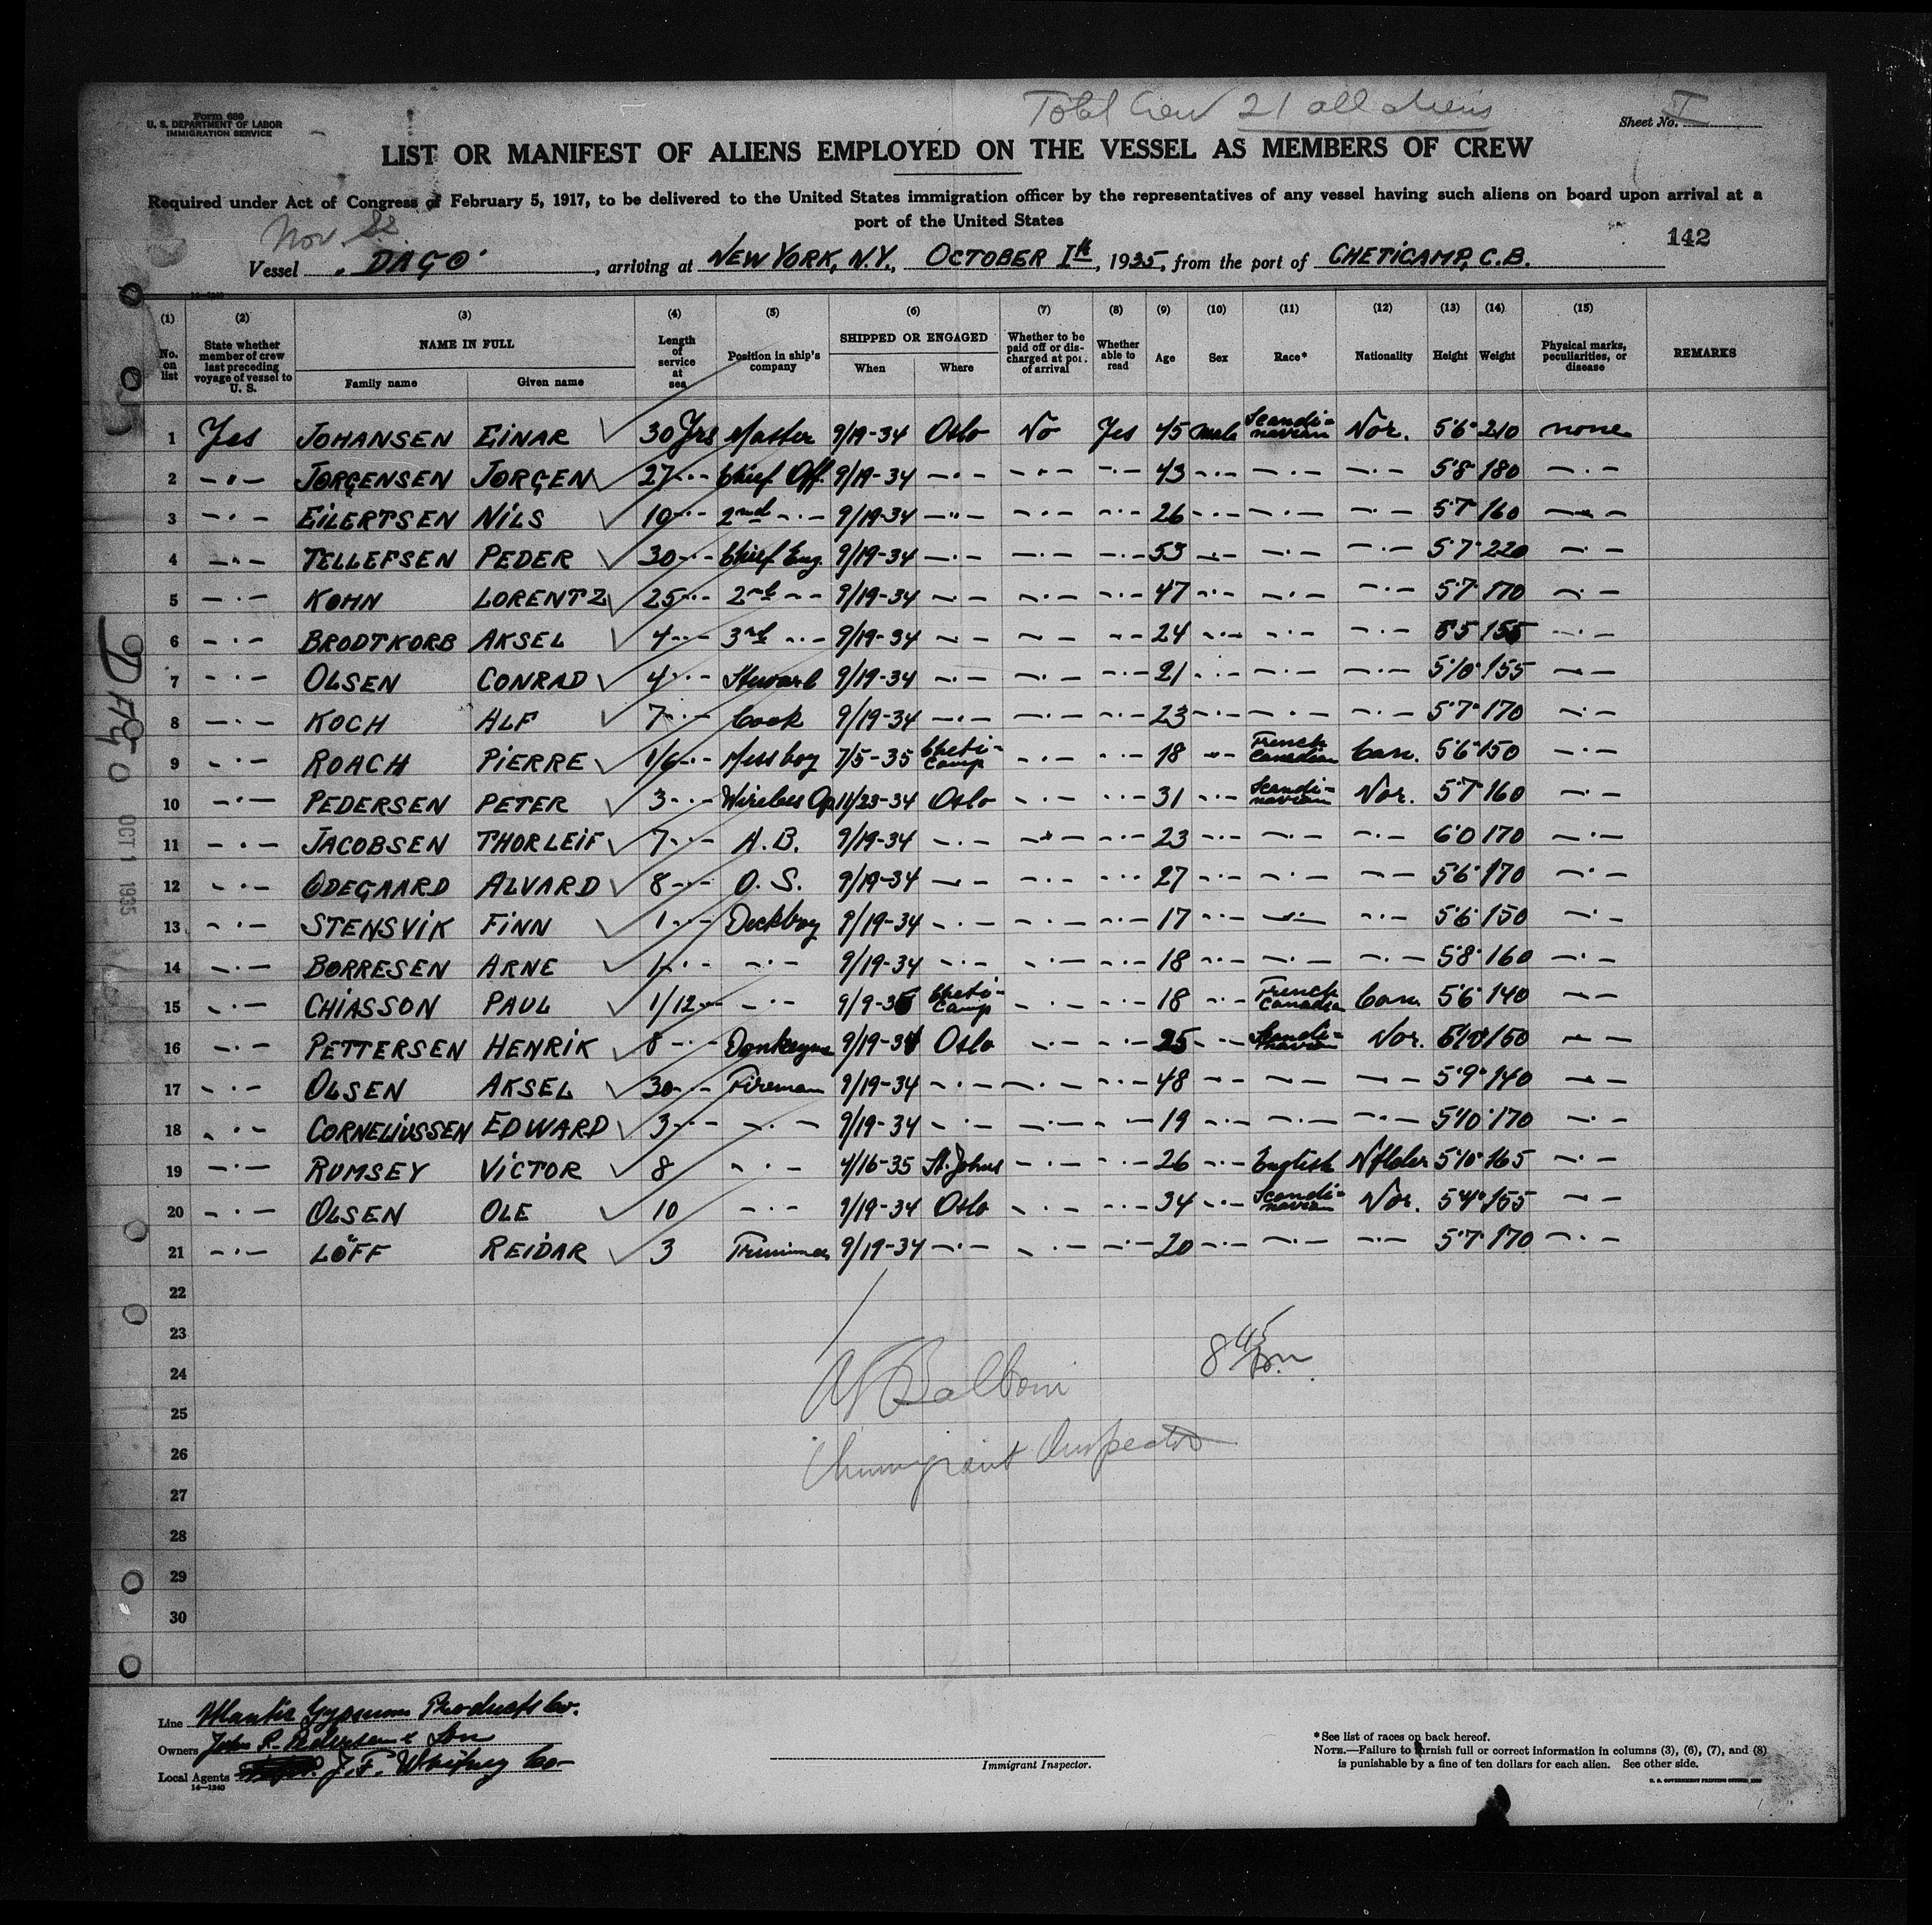 Total Crew 21 all aliens
Form 680
U. S. DEPARTMENT OF LABOR
IMMIGRATION SERVICE
Sheet No. I
LIST OR MANIFEST OF ALIENS EMPLOYED ON THE VESSEL AS MEMBERS OF CREW
Required under Act of Congress of February 5, 1917, to be delivered to the United States immigration officer by the representatives of any vessel having such aliens on board upon arrival at a
port of the United States
Nor. SS
142
Vessel "DAGO", arriving at NEW YORK, N.Y., OCTOBER Ith, 1935, from the port of CHETICAMP, C.B.
(1) (2) (3) (4) (5) (6) (7) (8) (9) (10) (11) (12) (13) (14) (15)
No. on list State whether member of crew last preceding voyage of vessel to U. S. NAME IN FULL Family name Given name Length of service at sea Position in ship's company SHIPPED OR ENGAGED When Where Whether to be paid off or discharged at port of arrival Whether able to read Age Sex Race* Nationality Height Weight Physical marks, peculiarities, or disease REMARKS
1 Yes JOHANSEN EINAR 30 Yrs Master 9/19-34 Oslo No Yes 45 male Scandi=navian Nor. 5'6" 210 none
2 -·- JØRGENSEN JØRGEN 27 -·- Chief Off. 9/19-34 -·- -·- -·- 43 -·- -·- -·- 5'8" 180 -·-
3 -·- EILERTSEN NILS 10 -·- 2nd -·- 9/19-34 -·- -·- -·- 26 -·- -·- -·- 5'7" 160 -·-
4 -·- TELLEFSEN PEDER 30 -·- Chief Eng. 9/19-34 -·- -·- -·- 53 -·- -·- -·- 5'7" 220 -·-
5 -·- KOHN LORENTZ 25 -·- 2nd -·- 9/19-34 -·- -·- -·- 47 -·- -·- -·- 5'7" 170 -·-
6 -·- BRODTKORB AKSEL 4 -·- 3rd -·- 9/19-34 -·- -·- -·- 24 -·- -·- -·- 5'5 155 -·-
7 -·- OLSEN CONRAD 4 -·- Steward 9/19-34 -·- -·- -·- 21 -·- -·- -·- 5'10" 155 -·-
8 -·- KOCH ALF 7 -·- Cook 9/19-34 -·- -·- -·- 23 -·- -·- -·- 5'7" 170 -·-
9 -·- ROACH PIERRE 1/6 -·- Messboy 7/5-35 Cheti-Camp -·- -·- 18 -·- French Canadian Can. 5'6" 150 -·-
10 -·- PEDERSEN PETER 3 -·- Wireless Op 11/23-34 Oslo -·- -·- 31 -·- Scandi=navian Nor. 5'7" 160 -·-
11 -·- JACOBSEN THORLEIF 7 -·- A.B. 9/19-34 -·- -·- -·- 23 -·- -·- -·- 6'0 170 -·-
12 -·- ØDEGAARD ALVARD 8 -·- O.S. 9/19-34 -·- -·- -·- 27 -·- -·- -·- 5'6" 170 -·-
13 -·- STENSVIK FINN 1 -·- Deckboy 9/19-34 -·- -·- -·- 17 -·- -·- -·- 5'6" 150 -·-
14 -·- BØRRESEN ARNE 1 -·- -·- 9/19-34 -·- -·- -·- 18 -·- -·- -·- 5'8" 160 -·-
15 -·- CHIASSON PAUL 1/12 -·- -·- 9/9-35 Cheti-Camp -·- -·- 18 -·- French Canadian Can. 5'6" 140 -·-
16 -·- PETTERSEN HENRIK 8 -·- Donkeyman 9/19-34 Oslo -·- -·- 25 -·- Scandi=navian Nor. 5'10" 160 -·-
17 -·- OLSEN AKSEL 30 -·- Fireman 9/19-34 -·- -·- -·- 48 -·- -·- -·- 5'9" 140 -·-
18 -·- CORNELIUSSEN EDWARD 3 -·- -·- 9/19-34 -·- -·- -·- 19 -·- -·- -·- 5'10" 170 -·-
19 -·- RUMSEY VICTOR 8 -·- 4/16-35 St. Johns -·- -·- 26 -·- English Nflder 5'10" 165 -·-
20 -·- OLSEN OLE 10 -·- 9/19-34 Oslo -·- -·- 34 -·- Scandi=navian Nor. 5'4" 155 -·-
21 -·- LÖFF REIDAR 3 Trimmer 9/19-34 -·- -·- -·- 20 -·- -·- -·- 5'7" 170 -·-
22
23
24
25
26
27
28
29
30
8 45 am
Balboni
Immigrant Inspector
DAGO
OCT 1 1935
Line Atlantic Gypsum Products Co.
Owners John P. Pedersen & Son
Local Agents J. F. Whitney Co
14—1240
Immigrant Inspector.
*See list of races on back hereof.
NOTE.—Failure to furnish full or correct information in columns (3), (6), (7), and (8)
is punishable by a fine of ten dollars for each alien. See other side.
U. S. GOVERNMENT PRINTING OFFICE